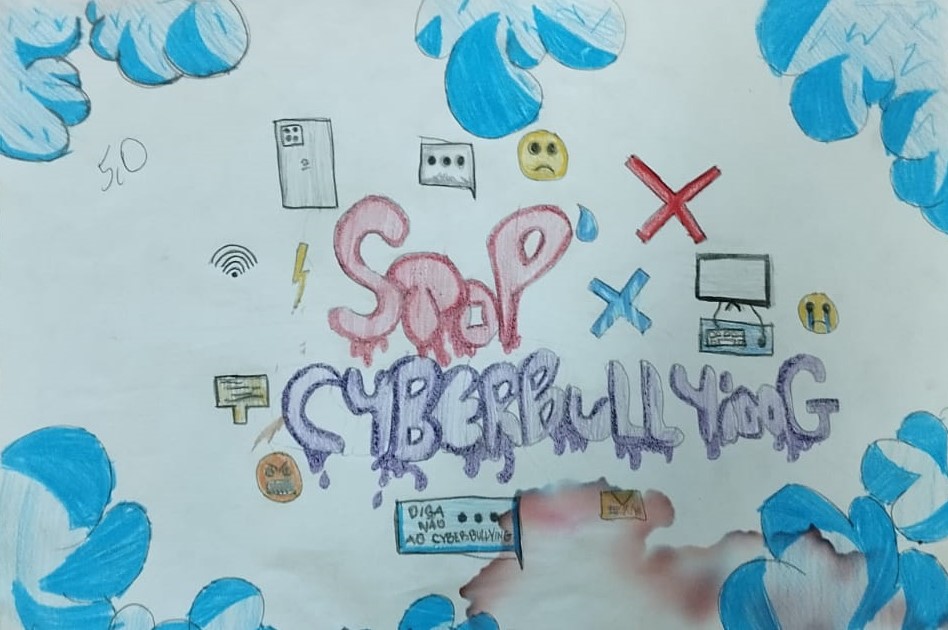 5,0
STOP
CYBERBuLLYiNG
DIGA
NÃO
AO CYBERBULLYING